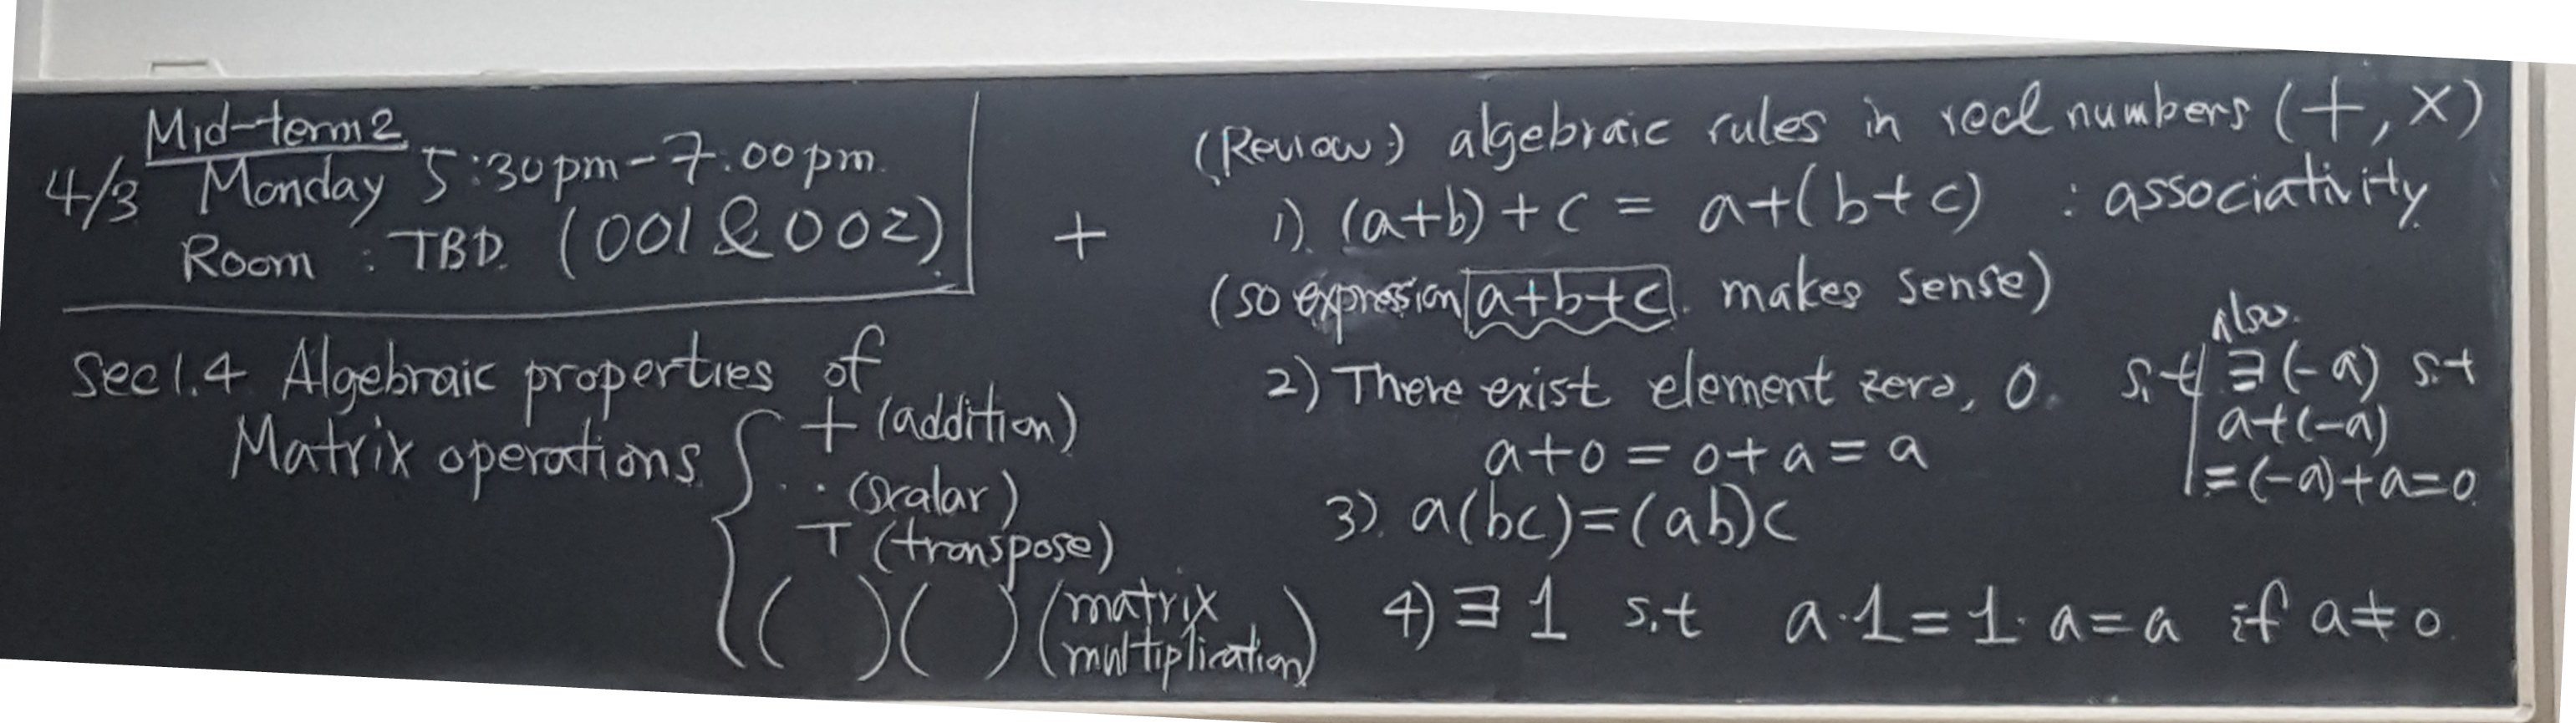 Mid-term 2
4/3 Monday 5:30pm-7:00pm.
Room : TBD. (001 & 002).
Sec 1.4 Algebraic properties of
Matrix operations
+ (addition)
· (scalar)
T (transpose)
( )( ) (matrix
multiplication)
(Review:) algebraic rules in real numbers (+, ×)
+
1). (a+b)+c = a+(b+c) : associativity.
(so expression a+b+c. makes sense)
2) There exist element zero, 0. s.t
a+0 = 0+a = a
also.
∃(-a) s.t
a+(-a)
=(-a)+a=0.
3). a(bc)=(ab)c
4) ∃ 1 s.t a·1=1·a=a if a≠0.